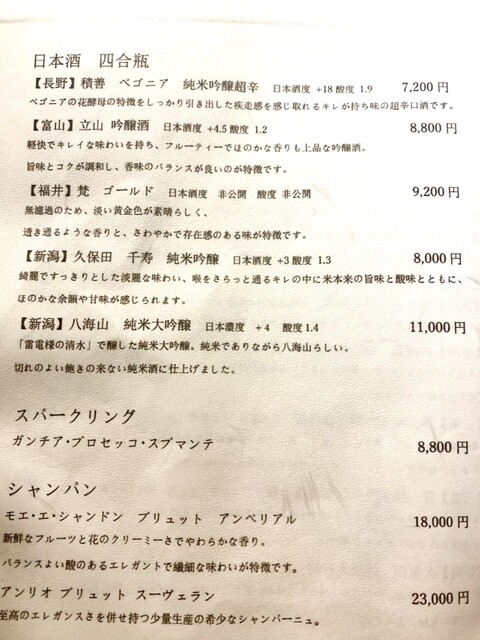 日本酒 四合瓶
【長野】積善 ベゴニア 純米吟醸超辛 日本酒度 +18 酸度 1.9 7,200円
ベゴニアの花酵母の特徴をしっかり引き出した疾走感を感じ取れるキレが持ち味の超辛口酒です。
【富山】立山 吟醸酒 日本酒度 +4.5 酸度 1.2 8,800円
軽快でキレイな味わいを持ち、フルーティーでほのかな香りも上品な吟醸酒。
旨味とコクが調和し、香味のバランスが良いのが特徴です。
【福井】梵 ゴールド 日本酒度 非公開 酸度 非公開 9,200円
無濾過のため、淡い黄金色が素晴らしく、
透き通るような香りと、さわやかで存在感のある味が特徴です。
【新潟】久保田 千寿 純米吟醸 日本酒度 +3 酸度 1.3 8,000円
綺麗ですっきりとした淡麗な味わい、喉をさらっと通るキレの中に米本来の旨味と酸味とともに、
ほのかな余韻や甘味が感じられます。
【新潟】八海山 純米大吟醸 日本濃度 +4 酸度1.4 11,000円
「雷電様の清水」で醸した純米大吟醸、純米でありながら八海山らしい。
切れのよい飽きの来ない純米酒に仕上げました。
スパークリング
ガンチア・プロセッコ・スプマンテ 8,800円
シャンパン
モエ・エ・シャンドン ブリュット アンペリアル 18,000円
新鮮なフルーツと花のクリーミーさでやわらかな香り。
バランスよい酸のあるエレガントで繊細な味わいが特徴です。
アンリオ ブリュット スーヴェラン 23,000円
至高のエレガンスさを併せ持つ少量生産の希少なシャンパーニュ。